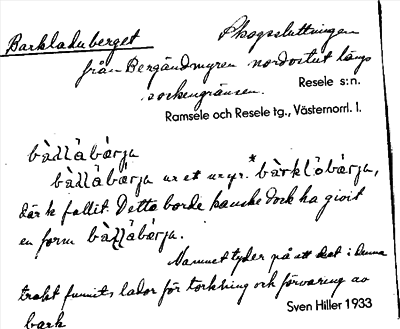 Barkladuberget Skogssluttningen
från Bergåndmyren nordostut längs
sockengränsen. Resele s:n.
Ramsele och Resele tg., Västernorrl. l.
bàl̀l̀àbǽrja
bàl̀l̀àbǽrja ur et urspr. *bàrklòbǽrja,
där k fallit. Detta borde kanske dock ha givit
en form bàl̀l̀àbǽrja.
Namnet tyder på att det i denna
trakt funnits lador för torkning och förvaring av
bark Sven Hiller 1933